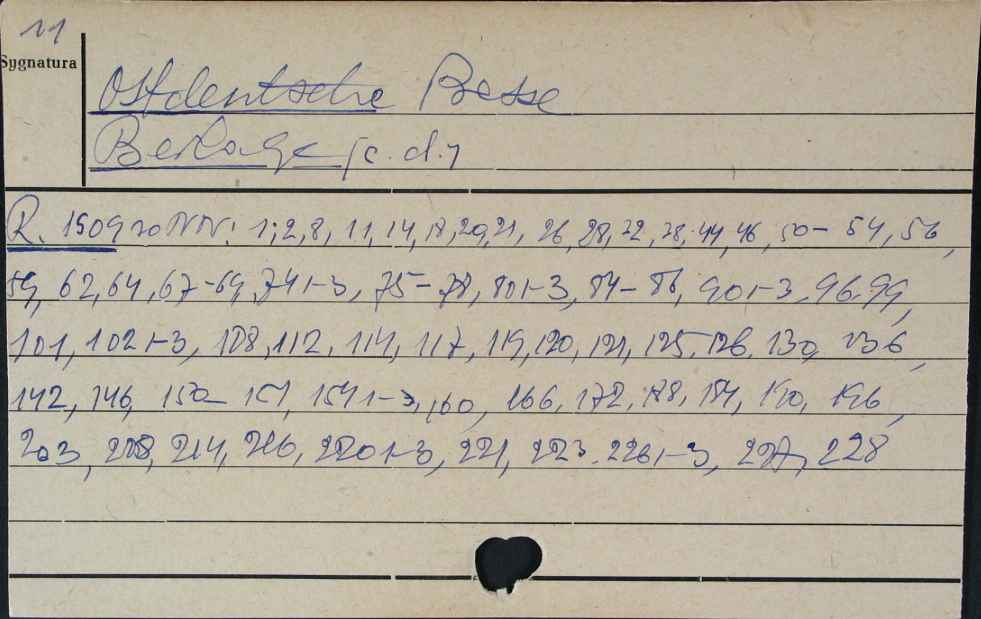 11
Sygnatura
Ostdeutsche Presse
Beilage (c.d.)
R. 1909 NN: 1, 2, 8, 11, 14, 18, 20, 21, 26, 28, 32, 38, 44, 46, 50-54, 56,
59, 62, 64, 67-69, 74 1-3, 75-78, 80 1-3, 84-86, 90 1-3, 96, 99,
101, 102 1-3, 108, 112, 114, 117, 119, 120, 121, 125, 126, 130, 136,
142, 146, 150-151, 154 1-3, 160, 166, 172, 178, 184, 190, 196,
203, 208, 214, 216, 220 1-3, 221, 223, 226 1-3, 227, 228